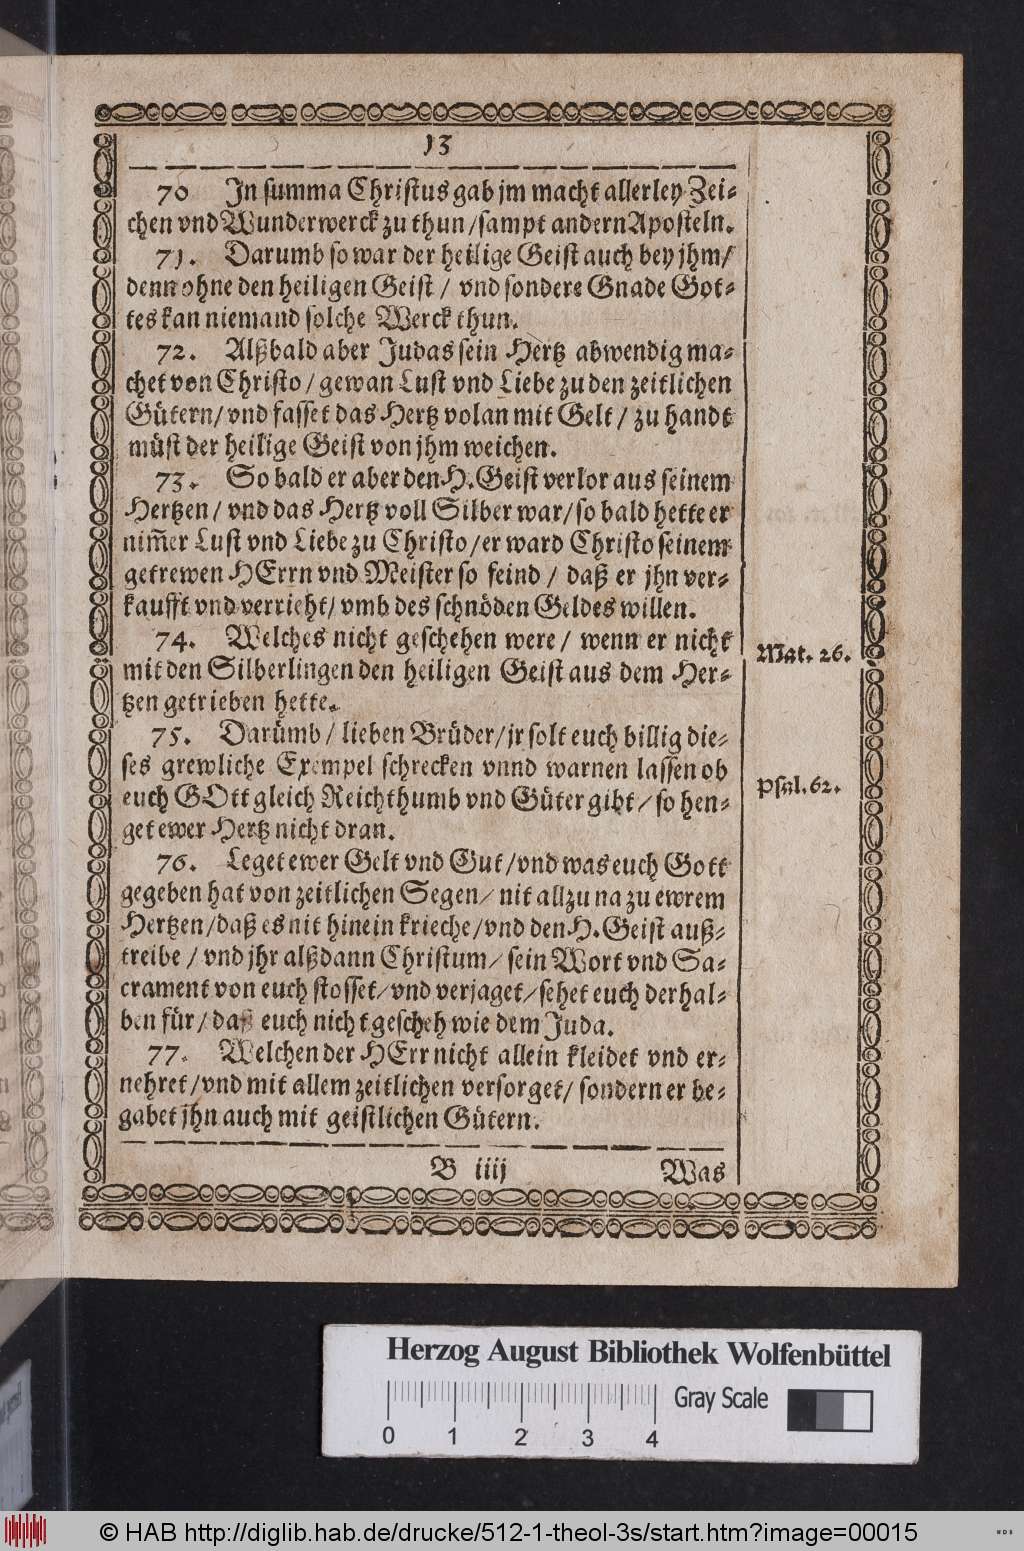 13
70 In summa Christus gab jm macht allerley Zei-
chen vnd Wunderwerck zu thun / sampt andern Aposteln.
71. Darumb so war der heilige Geist auch bey jhm/
denn ohne den heiligen Geist / vnd sondere Gnade Got-
tes kan niemand solche Werck thun.
72. Alßbald aber Judas sein Hertz abwendig ma-
chet von Christo / gewan Lust vnd Liebe zu den zeitlichen
Gütern/ vnd fasset das Hertz volan mit Gelt / zu handt
müst der heilige Geist von jhm weichen.
73. So bald er aber den H. Geist verlor aus seinem
Hertzen / vnd das Hertz voll Silber war/ so bald hette er
nim̃er Lust vnd Liebe zu Christo / er ward Christo seinem
getrewen HErrn vnd Meister so feind / daß er jhn ver-
kaufft vnd verrieht/ vmb des schnöden Geldes willen.
74. Welches nicht geschehen were / wenn er nicht
Mat. 26.
mit den Silberlingen den heiligen Geist aus dem Her-
tzen getrieben hette.
75. Darümb / lieben Brüder/ jr solt euch billig die-
ses grewliche Exempel schrecken vnnd warnen lassen ob
Psal. 62.
euch GOtt gleich Reichthumb vnd Güter gibt / so hen-
get ewer Hertz nicht dran.
76. Leget ewer Gelt vnd Gut / vnd was euch Gott
gegeben hat von zeitlichen Segen / nit allzu na zu ewrem
Hertzen / daß es nit hinein krieche / vnd den H. Geist auß-
treibe / vnd jhr alßdann Christum / sein Wort vnd Sa-
crament von euch stosset / vnd verjaget / sehet euch derhal-
ben für / daß euch nicht gescheh wie dem Juda.
77. Welchen der HErr nicht allein kleidet vnd er-
nehret / vnd mit allem zeitlichen versorget / sondern er be-
gabet jhn auch mit geistlichen Gütern.
B iiij Was
Herzog August Bibliothek Wolfenbüttel
0 1 2 3 4 Gray Scale
© HAB http://diglib.hab.de/drucke/512-1-theol-3s/start.htm?image=00015